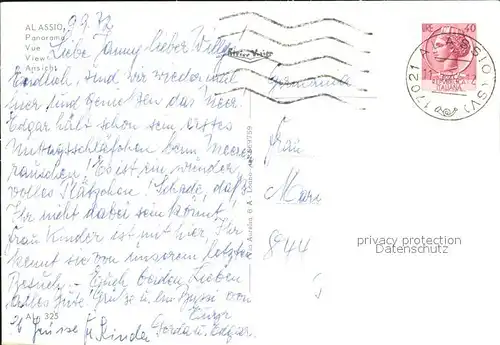 ALASSIO
9.3.72
Panorama
Vue
View
Ansicht
Liebe Fanny lieber Willy!
Endlich sind wir wieder mal
hier und genießen das Meer.
Edgar hält schon sein erstes
Mittagsschläfchen beim Meeres
rauschen! Es ist ein wunder
volles Plätzchen! Schade, daß
Ihr nicht dabei sein könnt,
Frau Kinder ist mit hier, Ihr
kennt sie von unserem letzten
Besuch. - Euch beiden Lieben
alles Gute Grüße u. ein Bussi von
Eurer
Gerda u. Edgar.
Grüsse Kinder
325
LIRE 40
ITALIANA
17021 ALASSIO (SV)
Germania
Frau
Mari
844
privacy protection
Datenschutz